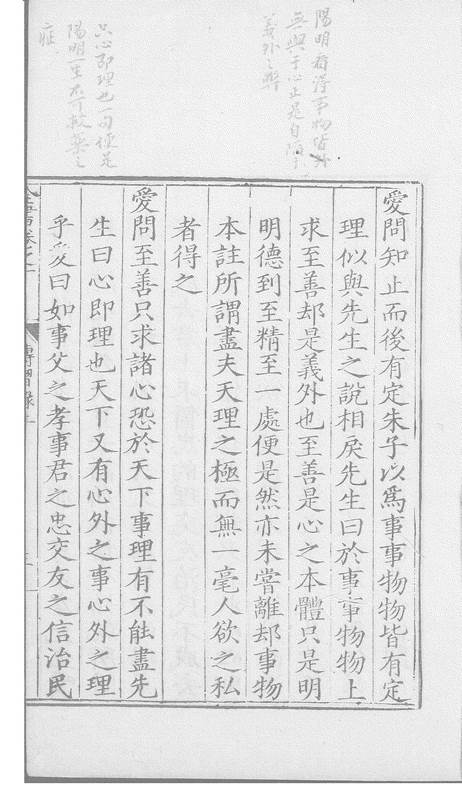 陽明看得事物皆外
無與于心止是自陷于
義外之弊
只心即理也一句便是
陽明一生不可救藥之
症
愛問知止而後有定朱子以爲事事物物皆有定
理似與先生之說相戾先生曰於事事物物上
求至善却是義外也至善是心之本體只是明
明德到至精至一處便是然亦未嘗離却事物
本註所謂盡夫天理之極而無一毫人欲之私
者得之
愛問至善只求諸心恐於天下事理有不能盡先
生曰心即理也天下又有心外之事心外之理
乎愛曰如事父之孝事君之忠交友之信治民
傳習錄上